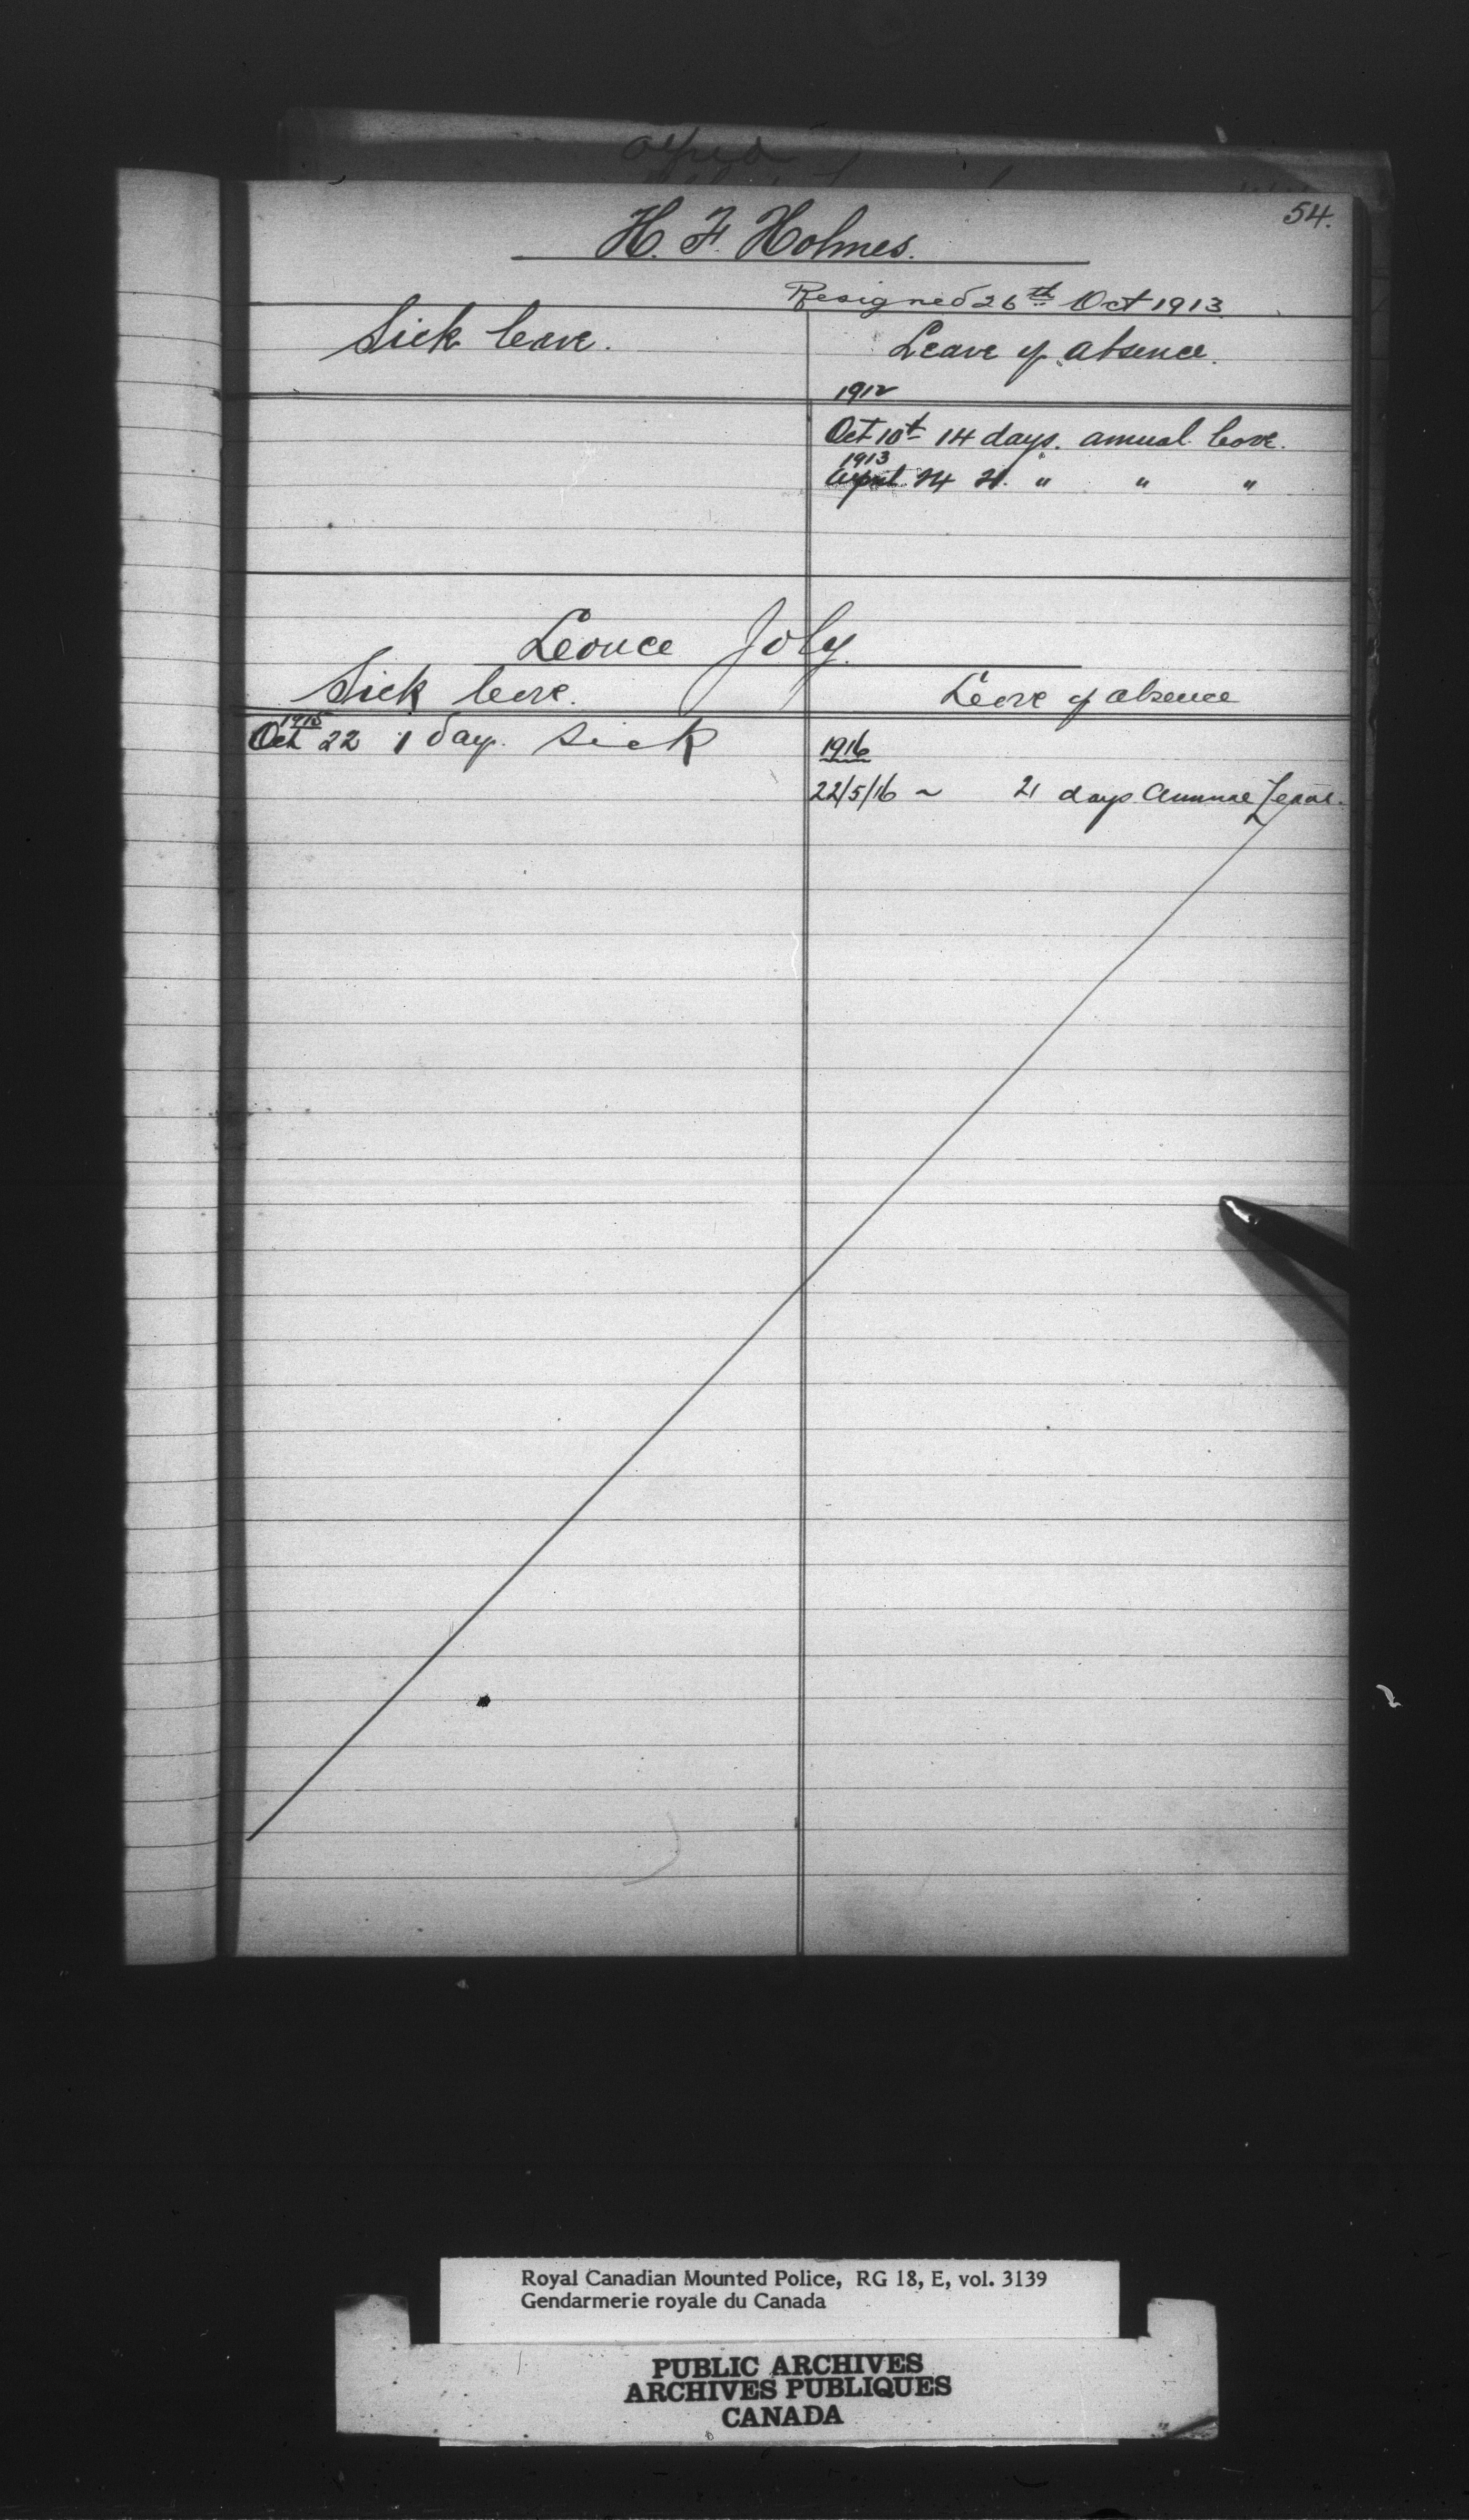 54.
H. F. Holmes.
Resigned 26th Oct 1913.
Sick leave. Leave of absence.
1912
Oct 10th 14 days. annual leave.
1913
April 24 21. " " "
Leonce Joly.
Sick leave. Leave of absence
1915
Oct 22 1 day. Sick
1916
22/5/16 ~ 21 days Annual Leave.
Royal Canadian Mounted Police, RG 18, E, vol. 3139
Gendarmerie royale du Canada
PUBLIC ARCHIVES
ARCHIVES PUBLIQUES
CANADA